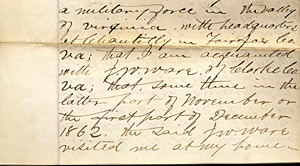 a military force in the Valley
of virginia, with headquarters
at Chantilly in Fairfax Co.
va; that I am acquainted
with J. W. Ware, of Clarke Co.
va; that, some time in the
latter part of November or
the first part of December
1862. the said J W Ware
visited me at my home